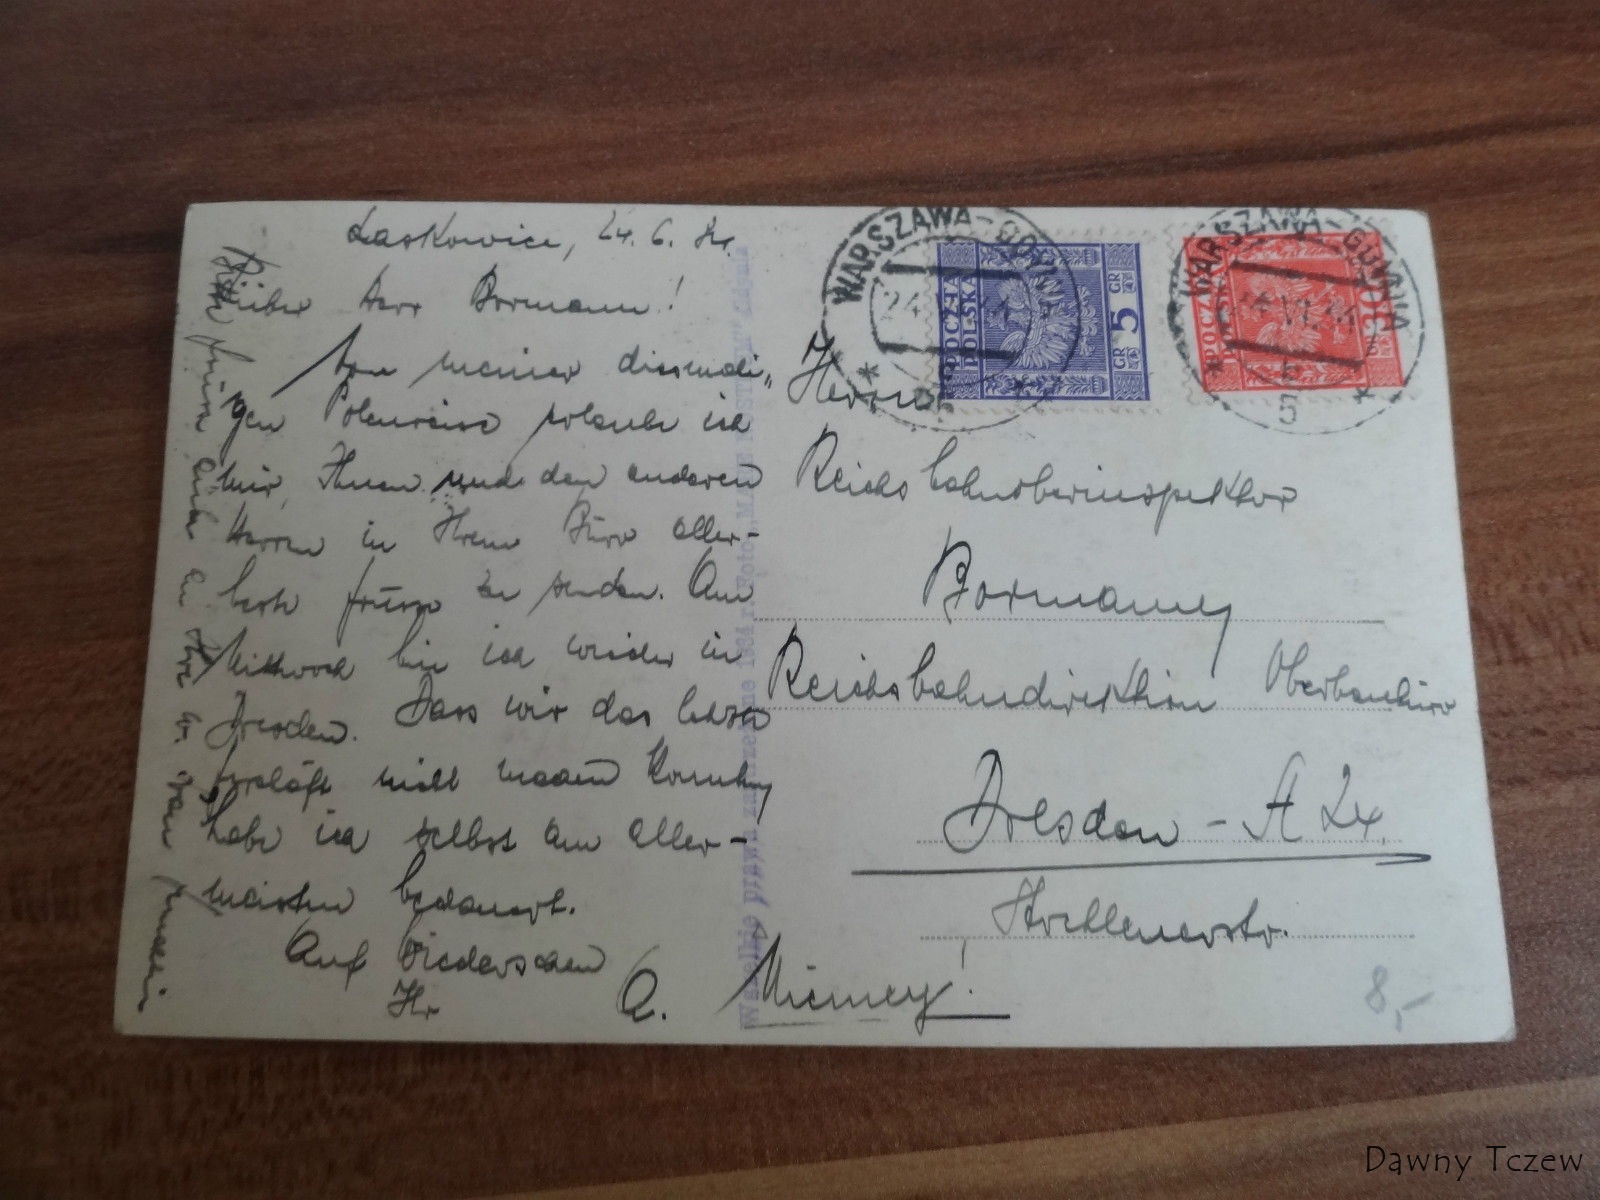 Laskowice, 24. 6. 34.
Lieber Herr Bormann!
Von meiner diesmali-
gen Polenreise erlaube ich
mir, Ihnen und den anderen
Herren in Ihrem Büro aller-
beste Grüsse zu senden. Am
Mittwoch bin ich wieder in
Dresden. Dass wir das letzte
Geschäft nicht machen konnten,
habe ich selbst am aller-
meisten bedauert.
Auf Wiedersehen
Ihr A.
Bitte grüssen auch an Ihre
WARSZAWA-GDYNIA
24.VI.34
POCZTA POLSKA
5 GR
GR
WARSZAWA-GDYNIA
24.VI.34
5
POCZTA
20
Herrn
Reichsbahnoberinspektor
Bormann
Reichsbahndirektion Oberbaubüro
Dresden - A 24.
Strehlenerstr.
8,-
Wszelkie prawa zastrzeżone 1934 r. Foto Gdynia
Dawny Tczew